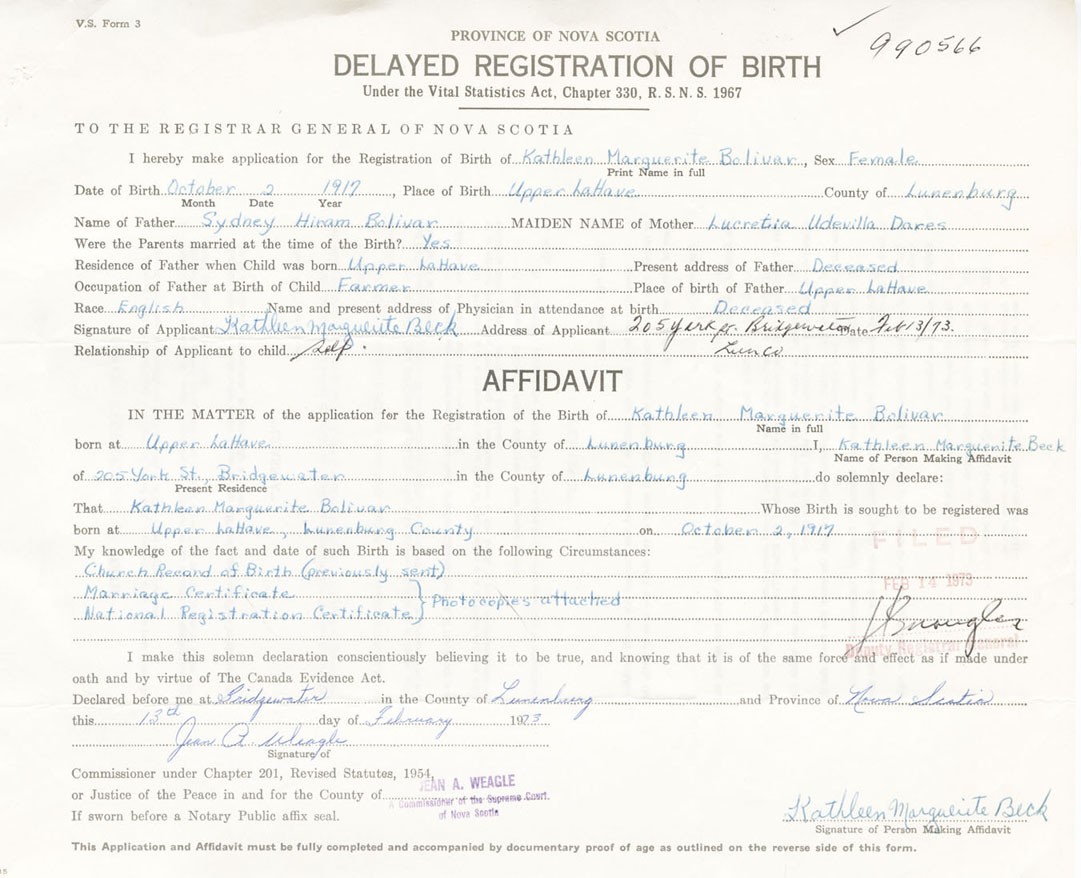 V.S. Form 3
990566
PROVINCE OF NOVA SCOTIA
DELAYED REGISTRATION OF BIRTH
Under the Vital Statistics Act, Chapter 330, R. S. N. S. 1967
TO THE REGISTRAR GENERAL OF NOVA SCOTIA
I hereby make application for the Registration of Birth of Kathleen Marguerite Bolivar, Sex Female
Print Name in full
Date of Birth October 2 1917, Place of Birth Upper LaHave County of Lunenburg
Month Date Year
Name of Father Sydney Hiram Bolivar MAIDEN NAME of Mother Lucretia Udevilla Dares
Were the Parents married at the time of the Birth? Yes
Residence of Father when Child was born Upper LaHave Present address of Father Deceased
Occupation of Father at Birth of Child Farmer Place of birth of Father Upper LaHave
Race English Name and present address of Physician in attendance at birth Deceased
Signature of Applicant Kathleen Marguerite Beck Address of Applicant 205 York St. Bridgewater Date Feb 13/73.
Relationship of Applicant to child Self. Lun Co
AFFIDAVIT
IN THE MATTER of the application for the Registration of the Birth of Kathleen Marguerite Bolivar
Name in full
born at Upper LaHave in the County of Lunenburg I, Kathleen Marguerite Beck
Name of Person Making Affidavit
of 205 York St., Bridgewater in the County of Lunenburg do solemnly declare:
Present Residence
That Kathleen Marguerite Bolivar Whose Birth is sought to be registered was
born at Upper LaHave, Lunenburg County on October 2, 1917
FILED
My knowledge of the fact and date of such Birth is based on the following Circumstances:
Church Record of Birth (previously sent)
FEB 14 1973
Marriage Certificate
National Registration Certificate } Photocopies attached
Deputy Registrar General
I make this solemn declaration conscientiously believing it to be true, and knowing that it is of the same force and effect as if made under
oath and by virtue of The Canada Evidence Act.
Declared before me at Bridgewater in the County of Lunenburg and Province of Nova Scotia
this 13th day of February 1973
Jean A. Weagle
Signature of
Commissioner under Chapter 201, Revised Statutes, 1954,
JEAN A. WEAGLE
or Justice of the Peace in and for the County of
A Commissioner of the Supreme Court.
of Nova Scotia
If sworn before a Notary Public affix seal.
Kathleen Marguerite Beck
Signature of Person Making Affidavit
This Application and Affidavit must be fully completed and accompanied by documentary proof of age as outlined on the reverse side of this form.